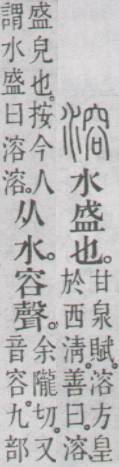 溶水盛也。甘泉賦。溶方皇
於西清。善曰。溶
盛皃也。按今人
謂水盛曰溶溶。
从水。容聲。余隴切。又
音容。九部